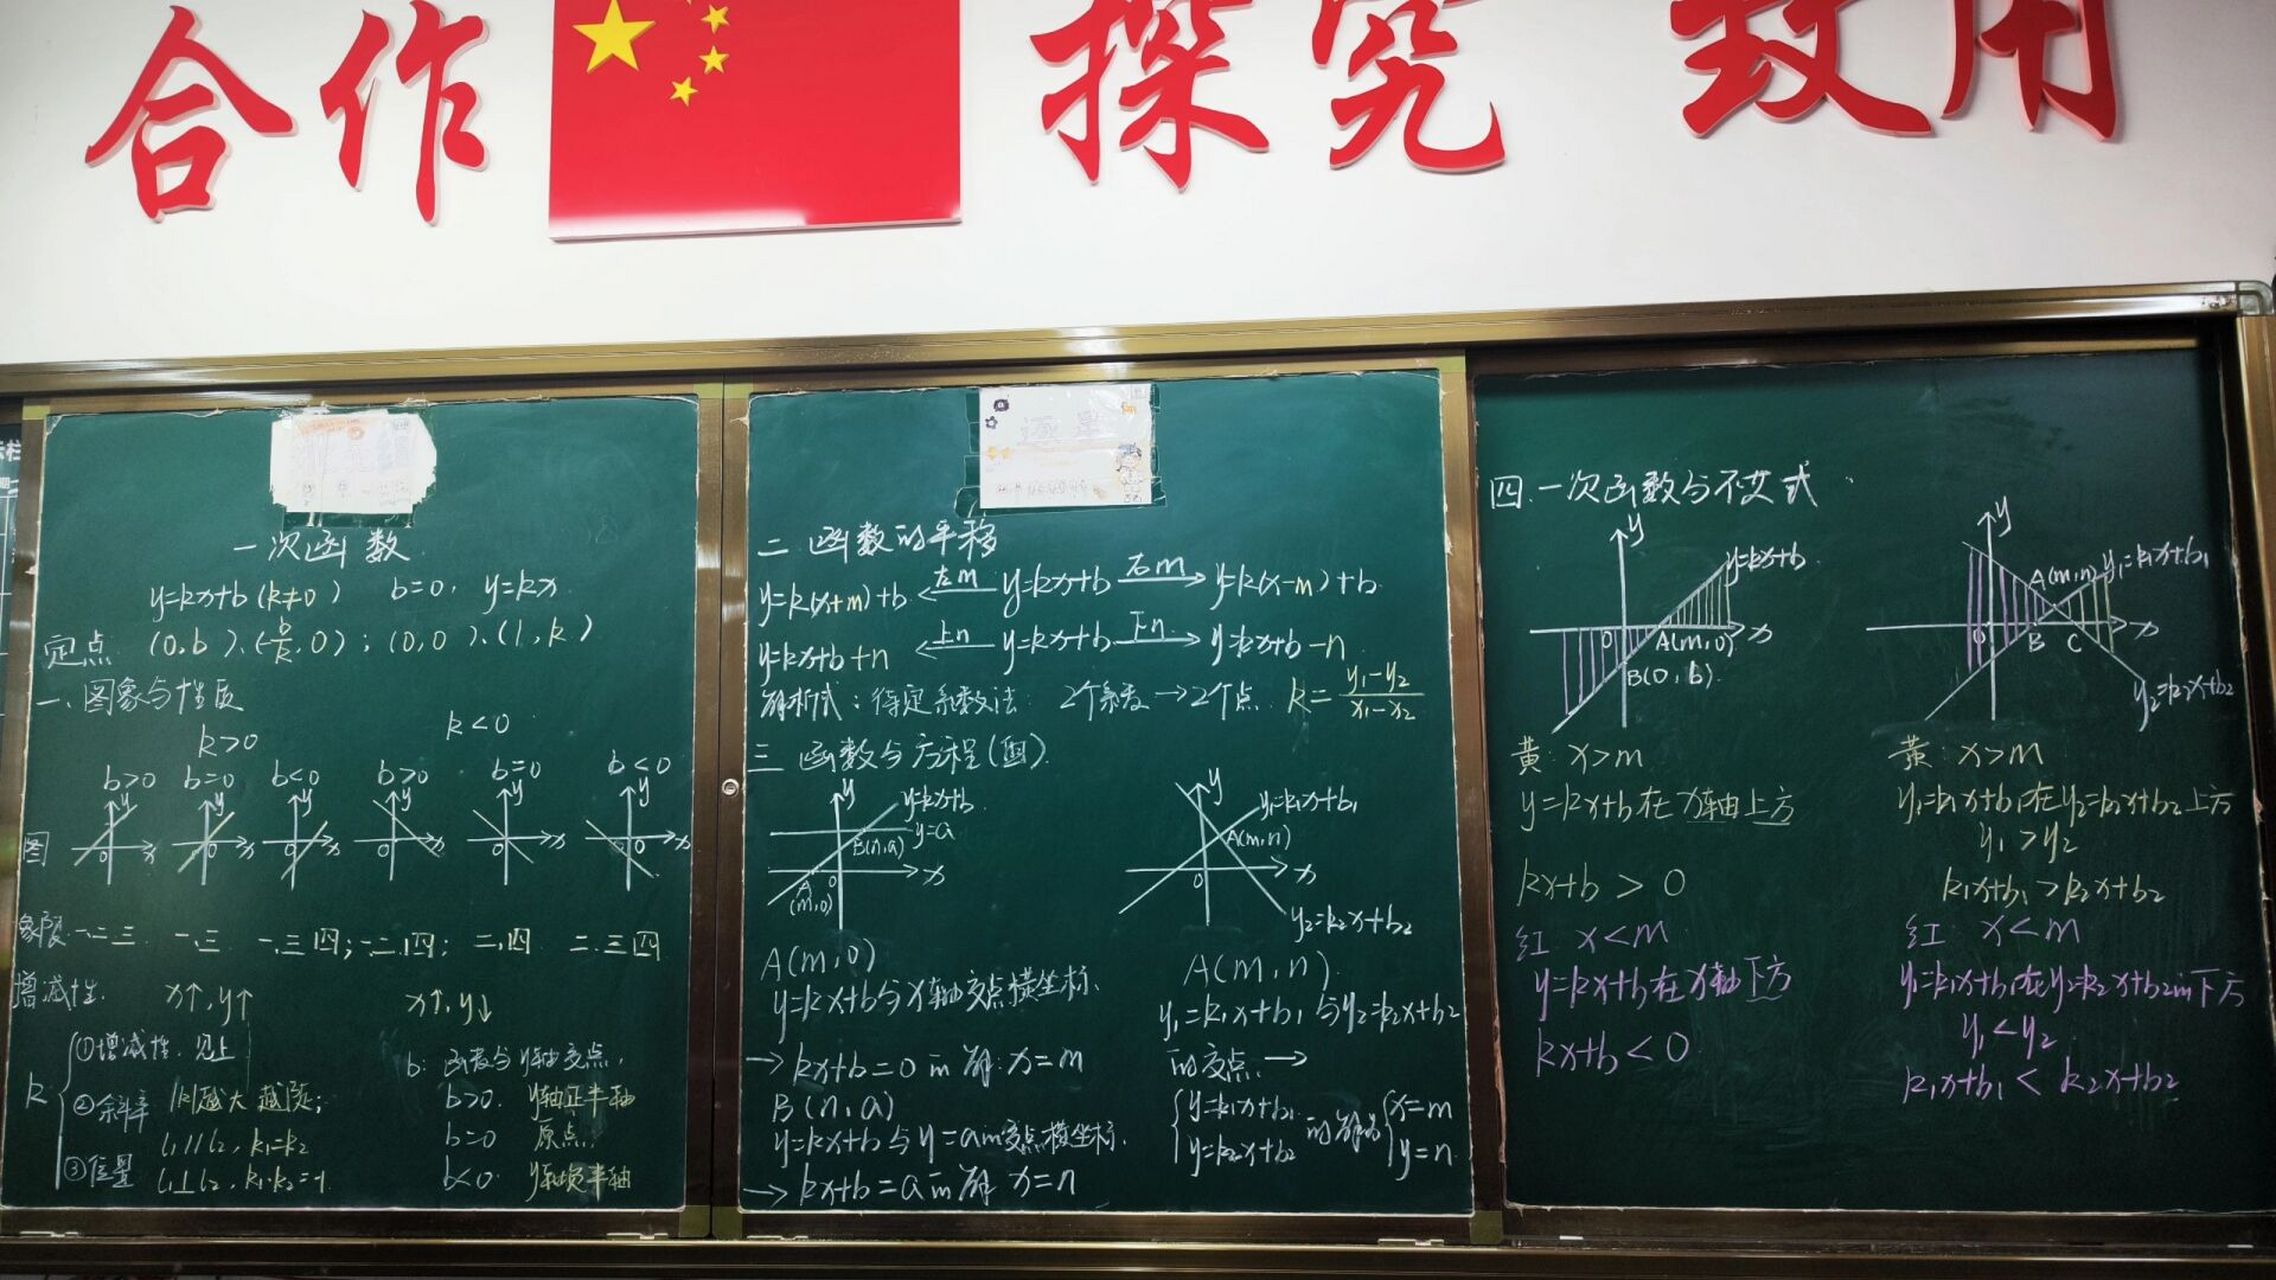 合作 探究 致用
一次函数
y=kx+b(k≠0) b=0, y=kx
定点 (0,b)、(-b/k,0); (0,0)、(1,k)
一、图象与性质
k>0 k<0
b>0 b=0 b<0 b>0 b=0 b<0
y y y y y y
图 0 x 0 x 0 x 0 x 0 x 0 x
象限 一、二、三 一、三 一、三、四; 一、二、四; 二、四 二、三、四
增减性 x↑,y↑ x↑,y↓
k
①增减性.见上
②斜率 |k|越大越陡;
③位置 l₁//l₂, k₁=k₂
l₁⊥l₂, k₁·k₂=-1
b: 函数与y轴交点,
b>0. y轴正半轴
b=0 原点.
b<0. y轴负半轴
二 函数的平移
y=k(x+m)+b ←左m— y=kx+b —右m→ y=k(x-m)+b
y=kx+b+n ←上n— y=kx+b —下n→ y=kx+b-n
解析式:待定系数法 2个系数→2个点 k=(y₁-y₂)/(x₁-x₂)
三 函数与方程(组)
y y=kx+b y=a B(n,a) x A(m,0) 0
y y₁=k₁x+b₁ A(m,n) x 0 y₂=k₂x+b₂
A(m,0)
y=kx+b与x轴交点横坐标、
→kx+b=0的解:x=m
B(n,a)
y=kx+b与y=a的交点横坐标.
→kx+b=a的解 x=n
A(m,n).
y₁=k₁x+b₁与y₂=k₂x+b₂
的交点.→
{y=k₁x+b₁ y=k₂x+b₂ 的解为{x=m y=n
四.一次函数与不等式
y y=kx+b 0 A(m,0) x B(0,b)
y A(m,n) y₁=k₁x+b₁ 0 B C x y₂=k₂x+b₂
黄: x>m
y=kx+b在x轴上方
kx+b>0
红 x<m
y=kx+b在x轴下方
kx+b<0
黄: x>m
y₁=k₁x+b₁在y₂=k₂x+b₂上方
y₁>y₂
k₁x+b₁>k₂x+b₂
红 x<m
y₁=k₁x+b₁在y₂=k₂x+b₂的下方
y₁<y₂
k₁x+b₁<k₂x+b₂